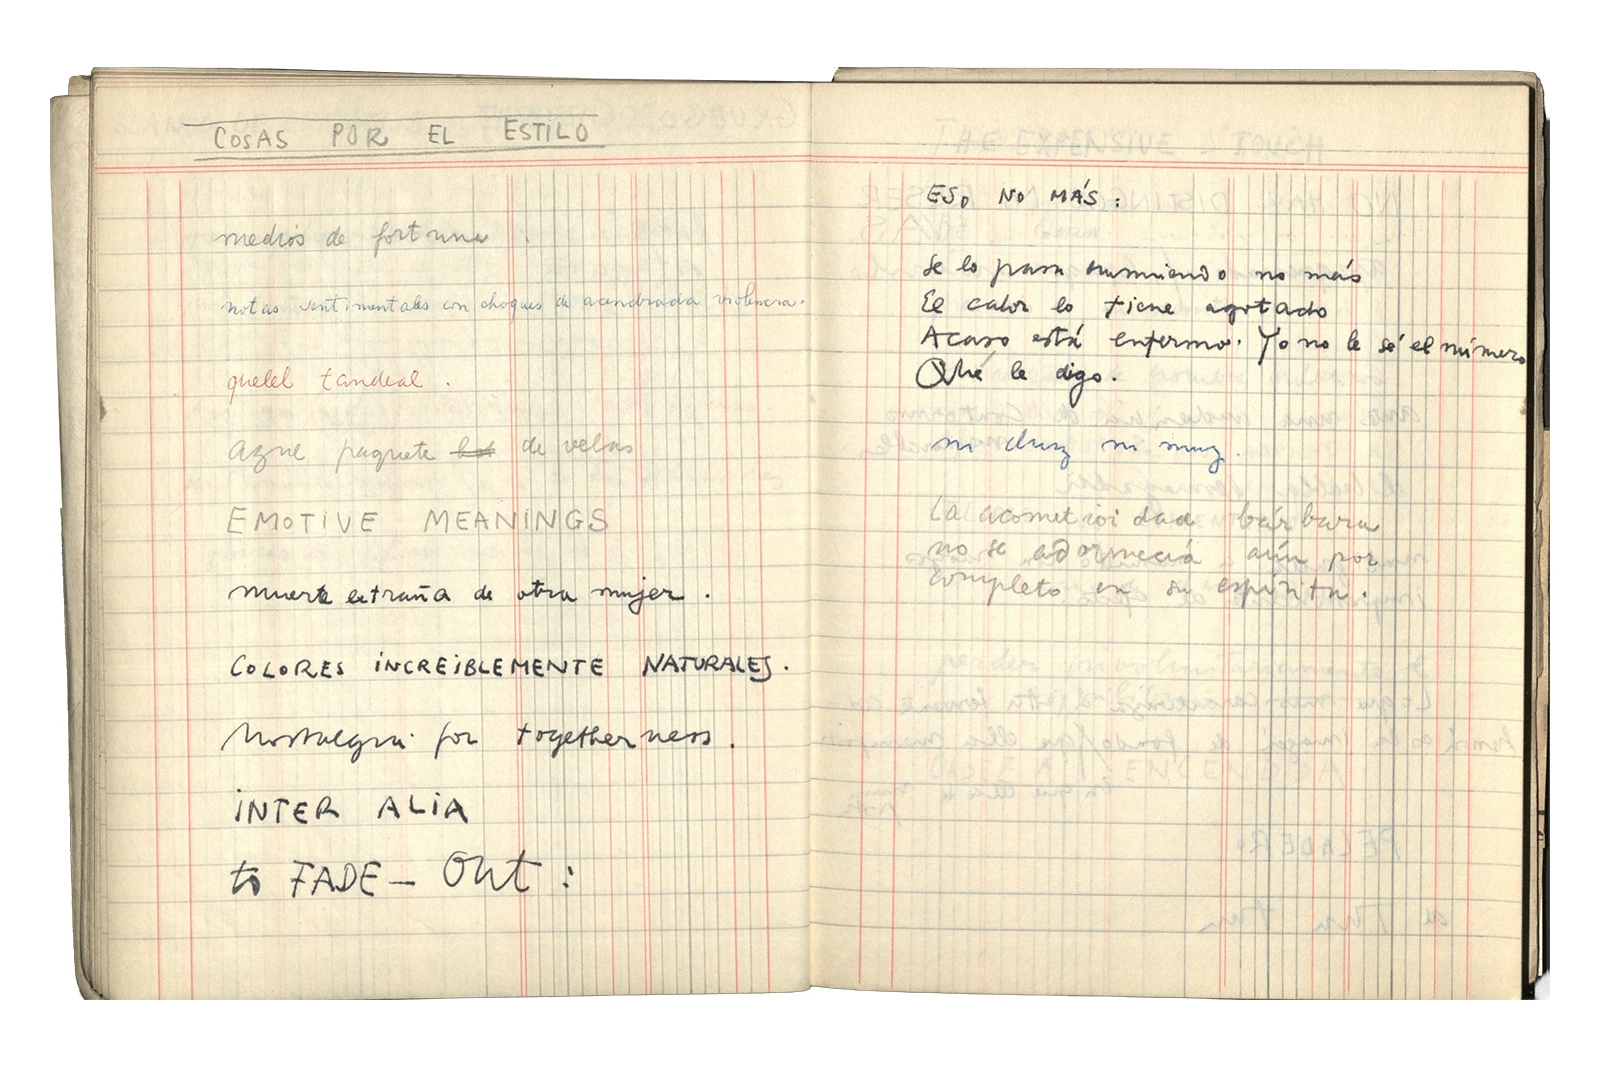 COSAS POR EL ESTILO
medios de fortuna.
notas sentimentales con choques de acendrada violencia.
quelel tandeal.
azul paquete de velas
EMOTIVE MEANINGS
muerte extraña de otra mujer.
COLORES INCREIBLEMENTE NATURALES.
Nostalgia for togetherness.
INTER ALIA
to FADE-OUT:
ESO NO MÁS:
Se lo pasa durmiendo no más
El calor lo tiene agotado
Acaso está enfermo. Yo no le sé el número
Qué le digo.
ni chuz ni muz.
La acometividad bárbara
no se adormecía aún por
completo en su espíritu.